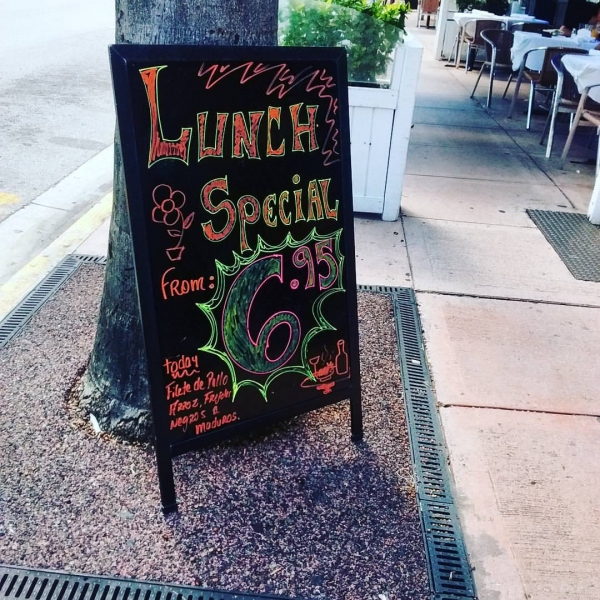 LUNCH
SPECIAL
FROM: 6.95
today
Filete de Pollo
Arroz, Frijoles
Negros e
maduros.